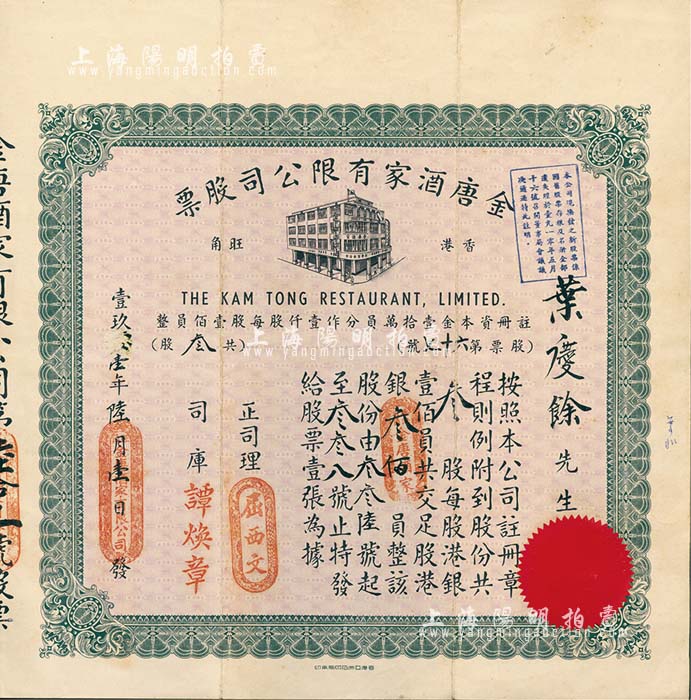 上海陽明拍賣
www.yangmingauction.com
金唐酒家有限公司股票
香港 旺角
THE KAM TONG RESTAURANT, LIMITED.
註冊資本金壹拾萬員分作壹仟股每股壹佰員整
(股票第六十 號) (共叁股)
本公司現換發之新股票係
因舊股票存根及名冊全部
遺失經於壹九 零年五月
十六號召開董事局會議議
決通過特此註明。
葉慶餘先生
按照本公司註冊章
程則例附到股份共
叁 股每股港銀
壹佰員共交足股港
銀叁佰 員整該
股份由叁叁陸號起
至叁叁八號止特發
給股票壹張為據
正司理 屈西文
司庫 譚煥章
壹玖 壹年陸月壹日發
金唐酒家有限公司第陸拾 號股票
上海陽明拍賣
www.yangmingauction.com